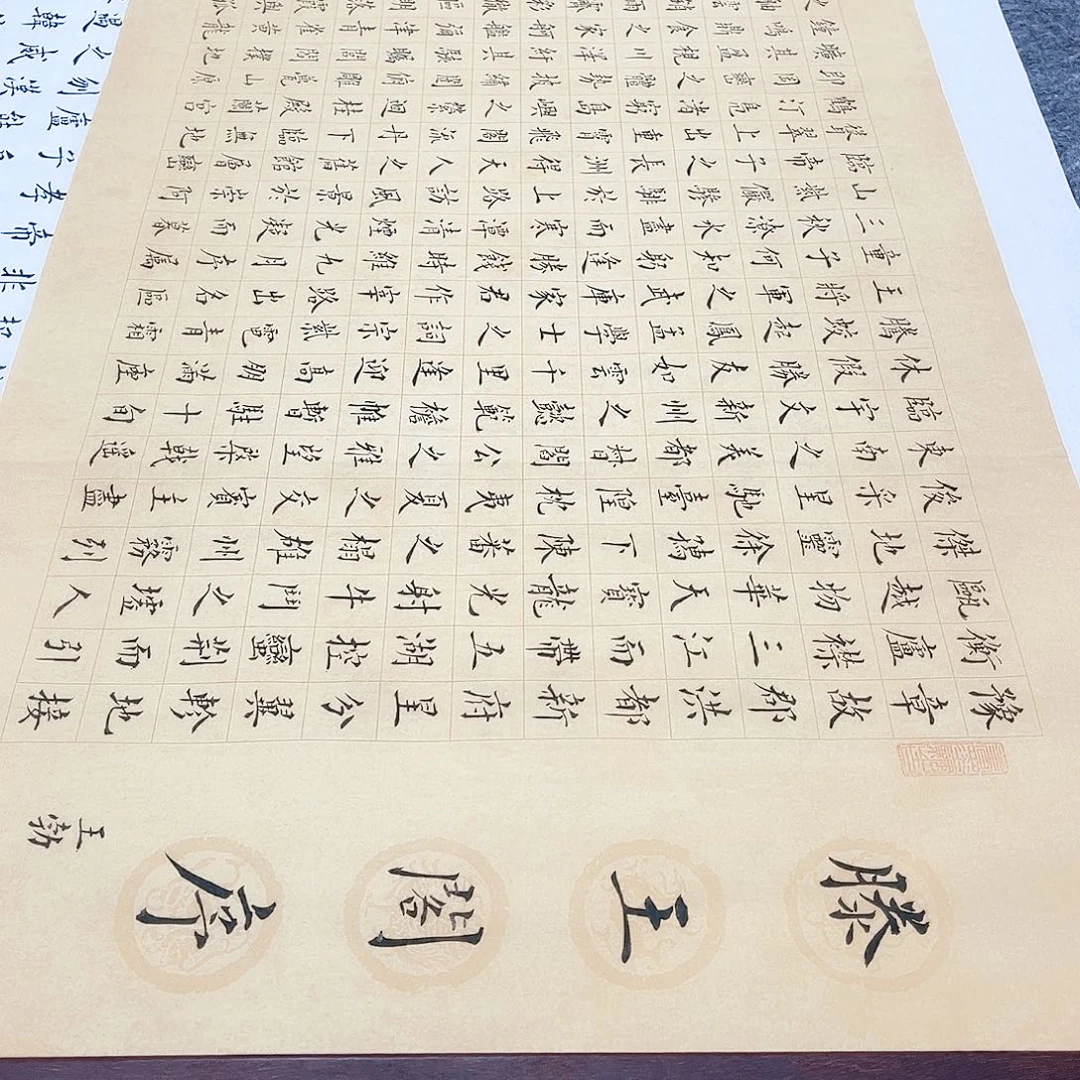 滕王閣序
王勃
豫章故郡洪都新府星分翼軫地接
衡廬襟三江而帶五湖控蠻荊而引
甌越物華天寶龍光射牛鬥之墟人
傑地靈徐孺下陳蕃之榻雄州霧列
俊采星馳臺隍枕夷夏之交賓主盡
東南之美都督閻公之雅望棨戟遙
臨宇文新州之懿範襜帷暫駐十旬
休假勝友如雲千里逢迎高朋滿座
騰蛟起鳳孟學士之詞宗紫電青霜
王將軍之武庫家君作宰路出名區
童子何知躬逢勝餞時維九月序屬
三秋潦水盡而寒潭清煙光凝而暮
山紫儼驂騑於上路訪風景於崇阿
臨帝子之長洲得天人之舊館層巒
聳翠上出重霄飛閣流丹下臨無地
鶴汀鳧渚窮島嶼之縈迴桂殿蘭宮
即岡巒之體勢披繡闥俯雕甍山原
曠其盈視川澤紆其駭矚閭閻撲地
鐘鳴鼎食之家舸艦彌津青雀黃龍
之舳雲銷雨霽彩徹區明落霞與孤